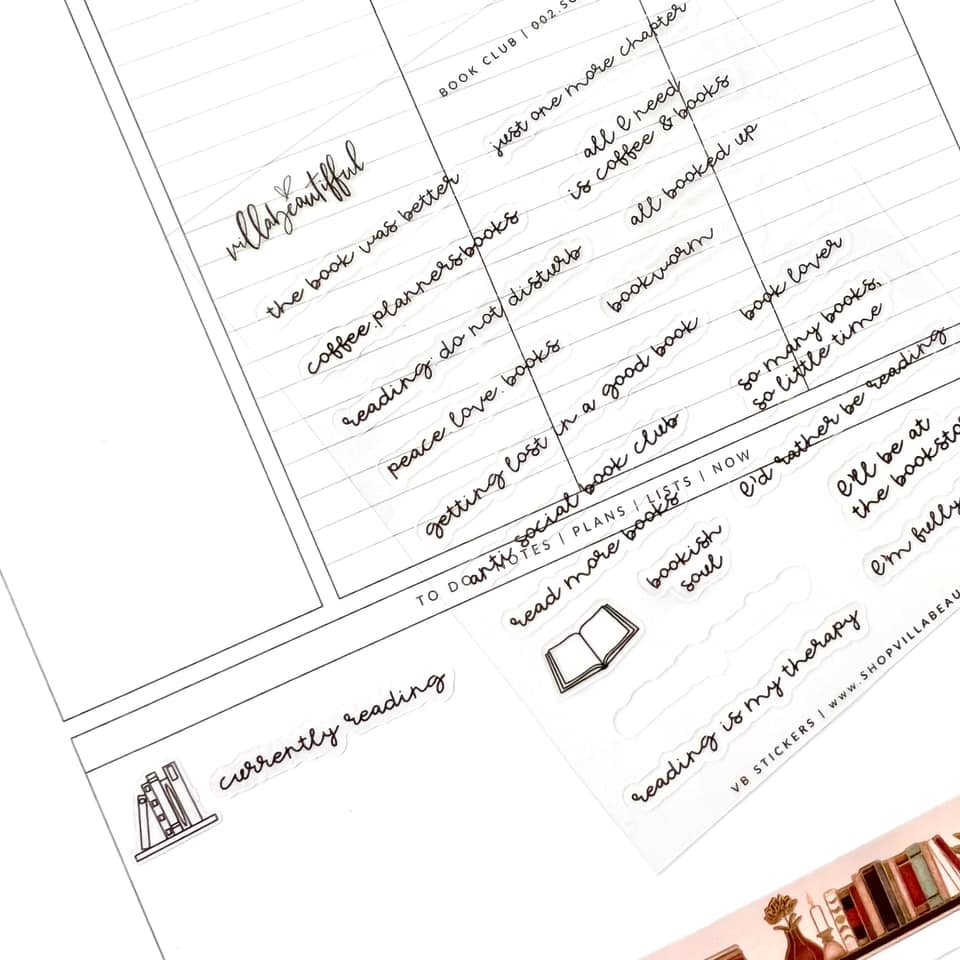 BOOK CLUB | 002.
villabeautifful
just one more chapter
all I need
is coffee & books
all booked up
the book was better
coffee.planners.books
reading: do not disturb
bookworm
book lover
peace.love.books
getting lost in a good book
so many books,
so little time
anti social book club
I'd rather be reading
I'll be at
the
I'm fully
TO DO | NOTES | PLANS | LISTS | NOW
read more books
bookish
soul
reading is my therapy
currently reading
VB STICKERS | www.SHOPVILLABEAU